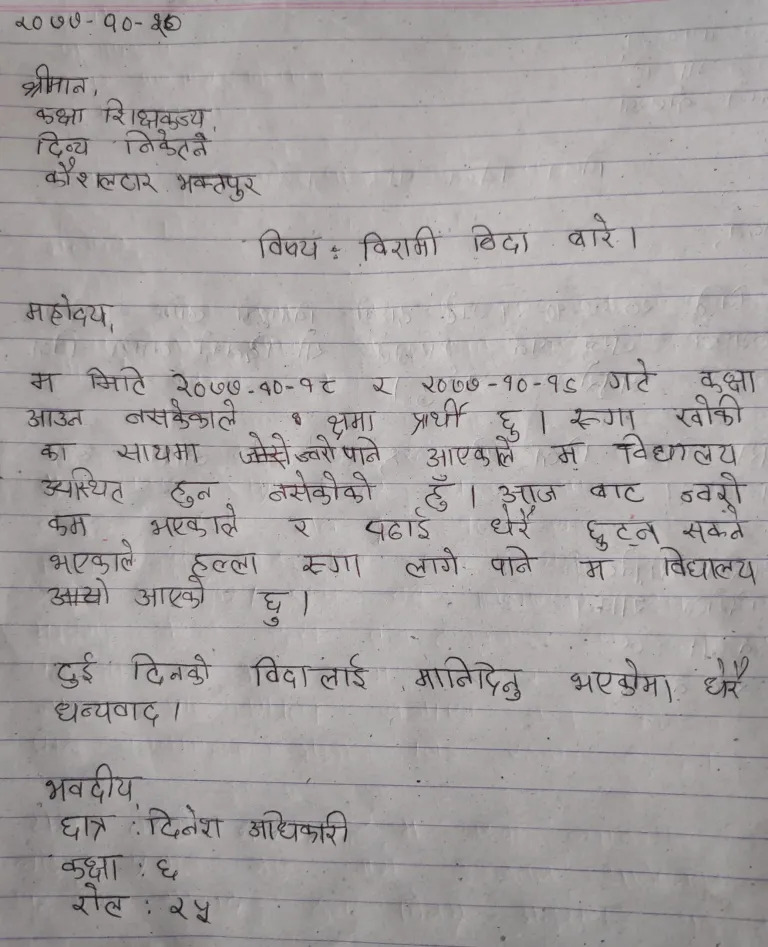 २०७७-१०-२०
श्रीमान,
कक्षा शिक्षकज्य,
दिव्य निकेतने
कौशलटार भक्तपुर
विषय : विरामी बिदा बारे।
महोदय,
म मिति २०७७-१०-१८ र २०७७-१०-१९ गते कक्षा
आउन नसकेकाले क्षमा प्रार्थी छु। रूगा खोकी
का साथमा ज्वरो पनि आएकाले म विद्यालय
उपस्थित हुन नसकेको हुँ। आज बाट ज्वरो
कम भएकाले र पढाई धेरै छुट्न सक्ने
भएकाले हल्ला रूगा लागे पनि म विद्यालय
आएको छु।
दुई दिनको विदालाई मानिदिनु भएकोमा धेरै
धन्यवाद।
भवदीय
छात्र : दिनेश अधिकारी
कक्षा : ६
रोल : २५